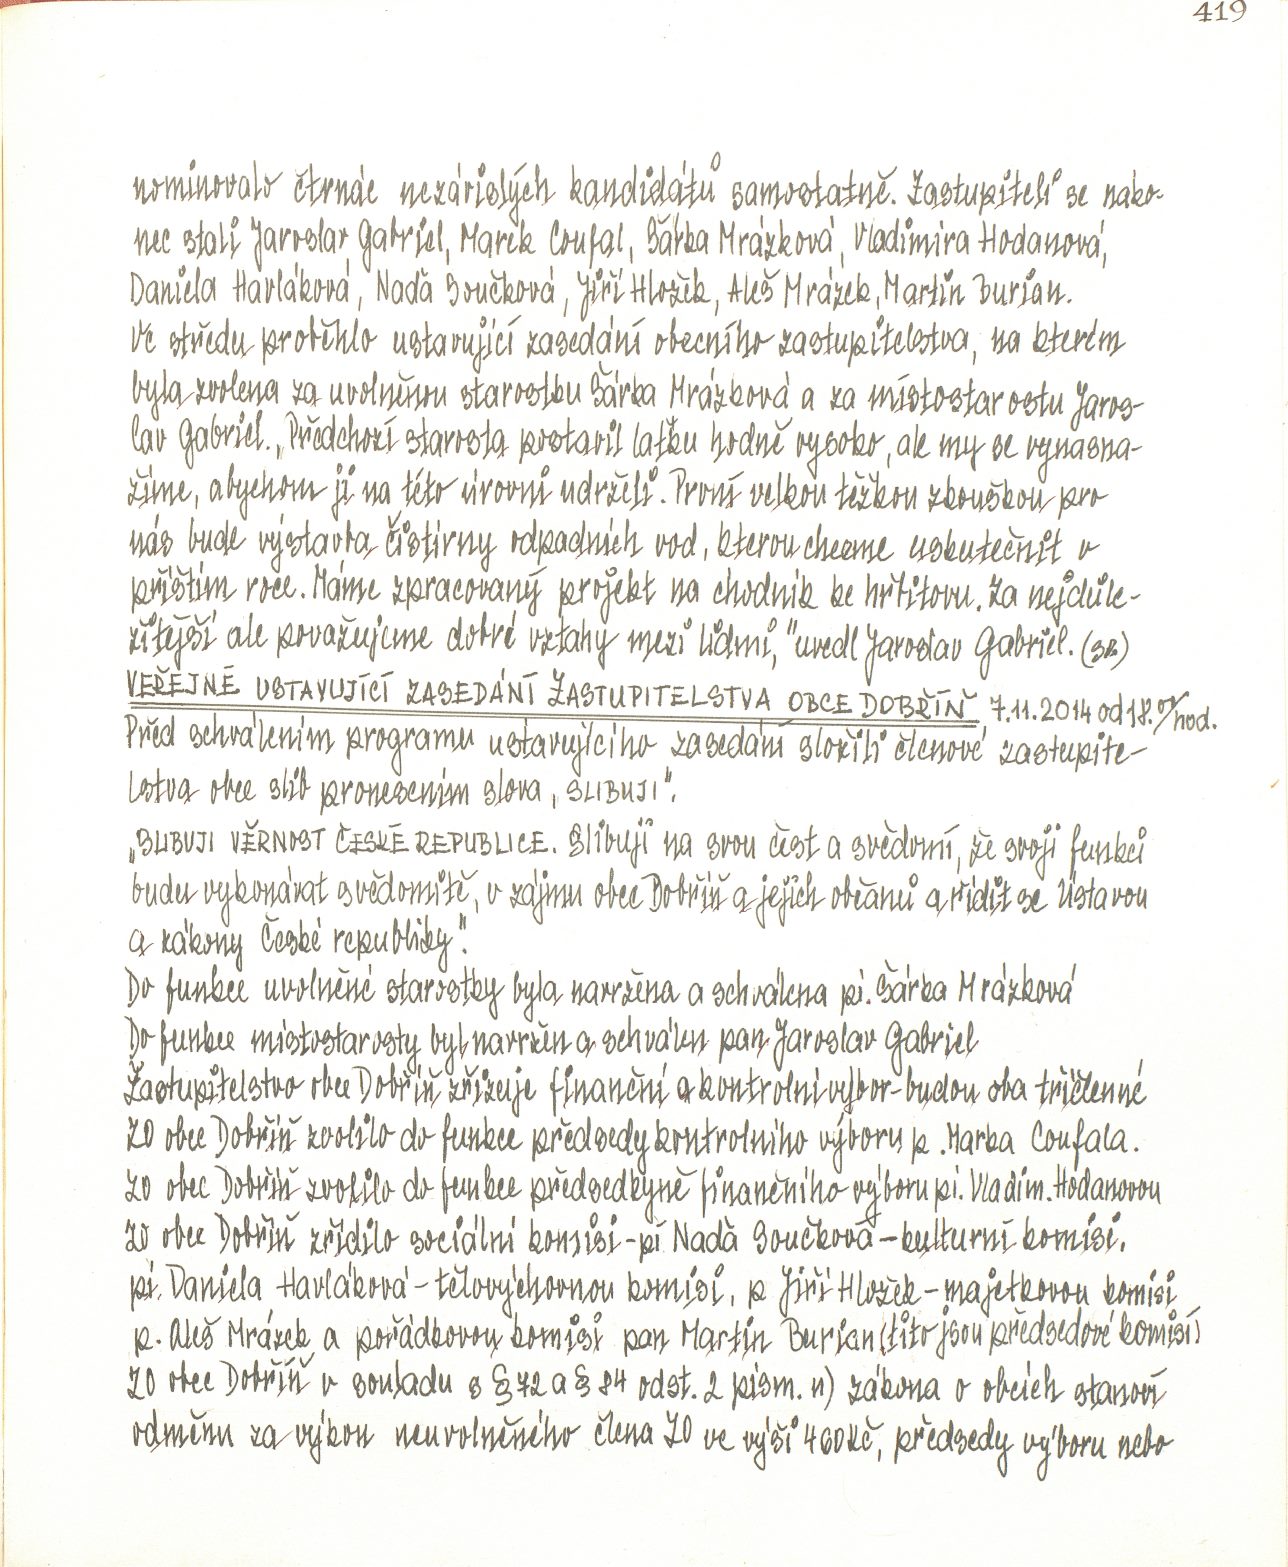 419
nominovalo čtrnác nezávislých kandidátů samostatně. Zastupiteli se nako-
nec stali Jaroslav Gabriel, Marek Coufal, Šárka Mrázková, Vladimíra Hodanová,
Daniela Havláková, Naďa Součková, Jiří Hložek, Aleš Mrázek, Martin Burian.
Ve středu proběhlo ustavující zasedání obecního zastupitelstva, na kterém
byla zvolena za uvolněnou starostku Šárka Mrázková a za místostarostu Jaros-
lav Gabriel. „Předchozí starosta postavil laťku hodně vysoko, ale my se vynasna-
žíme, abychom ji na této úrovni udrželi. První velkou těžkou zkouškou pro
nás bude výstavba čistírny odpadních vod, kterou chceme uskutečnit v
příštím roce. Máme zpracovaný projekt na chodník ke hřbitovu. Za nejdůle-
žitější ale považujeme dobré vztahy mezi lidmi," uvedl Jaroslav Gabriel. (SB)
VEŘEJNÉ USTAVUJÍCÍ ZASEDÁNÍ ZASTUPITELSTVA OBCE DOBŘÍŇ 7.11.2014 od 18.00 hod.
Před schválením programu ustavujícího zasedání složili členové zastupite-
lstva obce slib pronesením slova „SLIBUJI".
„SLIBUJI VĚRNOST ČESKÉ REPUBLICE. Slibuji na svou čest a svědomí, že svoji funkci
budu vykonávat svědomitě, v zájmu obce Dobříň a jejích občanů a řídit se Ústavou
a zákony České republiky".
Do funkce uvolněné starostky byla navržena a schválena pí. Šárka Mrázková
Do funkce místostarosty byl navržen a schválen pan Jaroslav Gabriel
Zastupitelstvo obce Dobříň zřizuje finanční a kontrolní výbor - budou oba tříčlenné
ZO obce Dobříň zvolilo do funkce předsedy kontrolního výboru p. Marka Coufala.
ZO obec Dobříň zvolilo do funkce předsedkyně finančního výboru pí. Vladim. Hodanovou
ZO obce Dobříň zřídilo sociální komisi - pí Naďa Součková - kulturní komisi,
pí. Daniela Havláková - tělovýchovnou komisi, p Jiří Hložek - majetkovou komisi
p. Aleš Mrázek a pořádkovou komisi pan Martin Burian (tito jsou předsedové komisí)
ZO obce Dobříň v souladu s § 72 a § 84 odst. 2 písm. n) zákona o obcích stanoví
odměnu za výkon neuvolněného člena ZO ve výši 460 Kč, předsedy výboru nebo